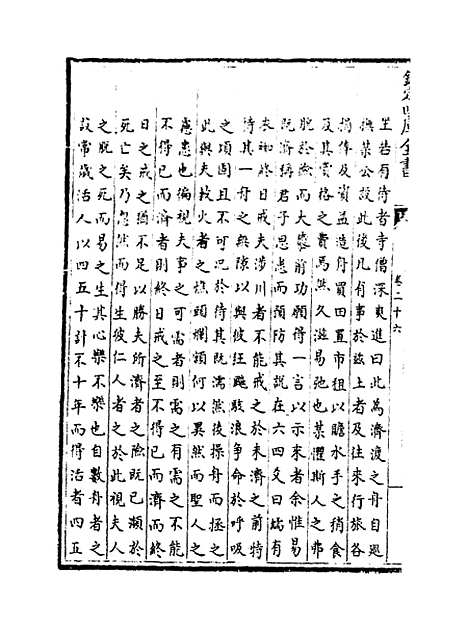 欽定四庫全書
卷二十六
坐若有待者寺僧深爽進曰此為濟渡之舟自趙
撫某公設此後凡有事於兹土者及往來行旅各
捐俸及資益造舟買田置市租以贍水手之稍食
及其賞格之費焉然久滋易弛也某懼斯人之弗
脫於險而大隳前功願得一言以示来者余惟易
既濟稱君子思患而預防其說在六四爻曰繻有
衣袽終日戒夫涉川者不能戒之於未濟之前特
恃其一舟之無隙以與彼狂飈駭浪爭命於呼吸
之頃固且不可况於侍其既濡然後操舟而拯之
此與夫救火者之焦頭爛額何以異然而聖人之
慮患也徧視夫事之可需者則需之有需之不能
不得已而濟者則終日戒之至不得已而濟而終
日之戒之猶不足以勝夫所濟者之險既已瀕於
死亡矣乃忽然而得生彼仁人者之於此視夫人
之脫之死而易之生其心樂不樂也自數舟者之
設常歲活人以四五十計不十年而得活者四五